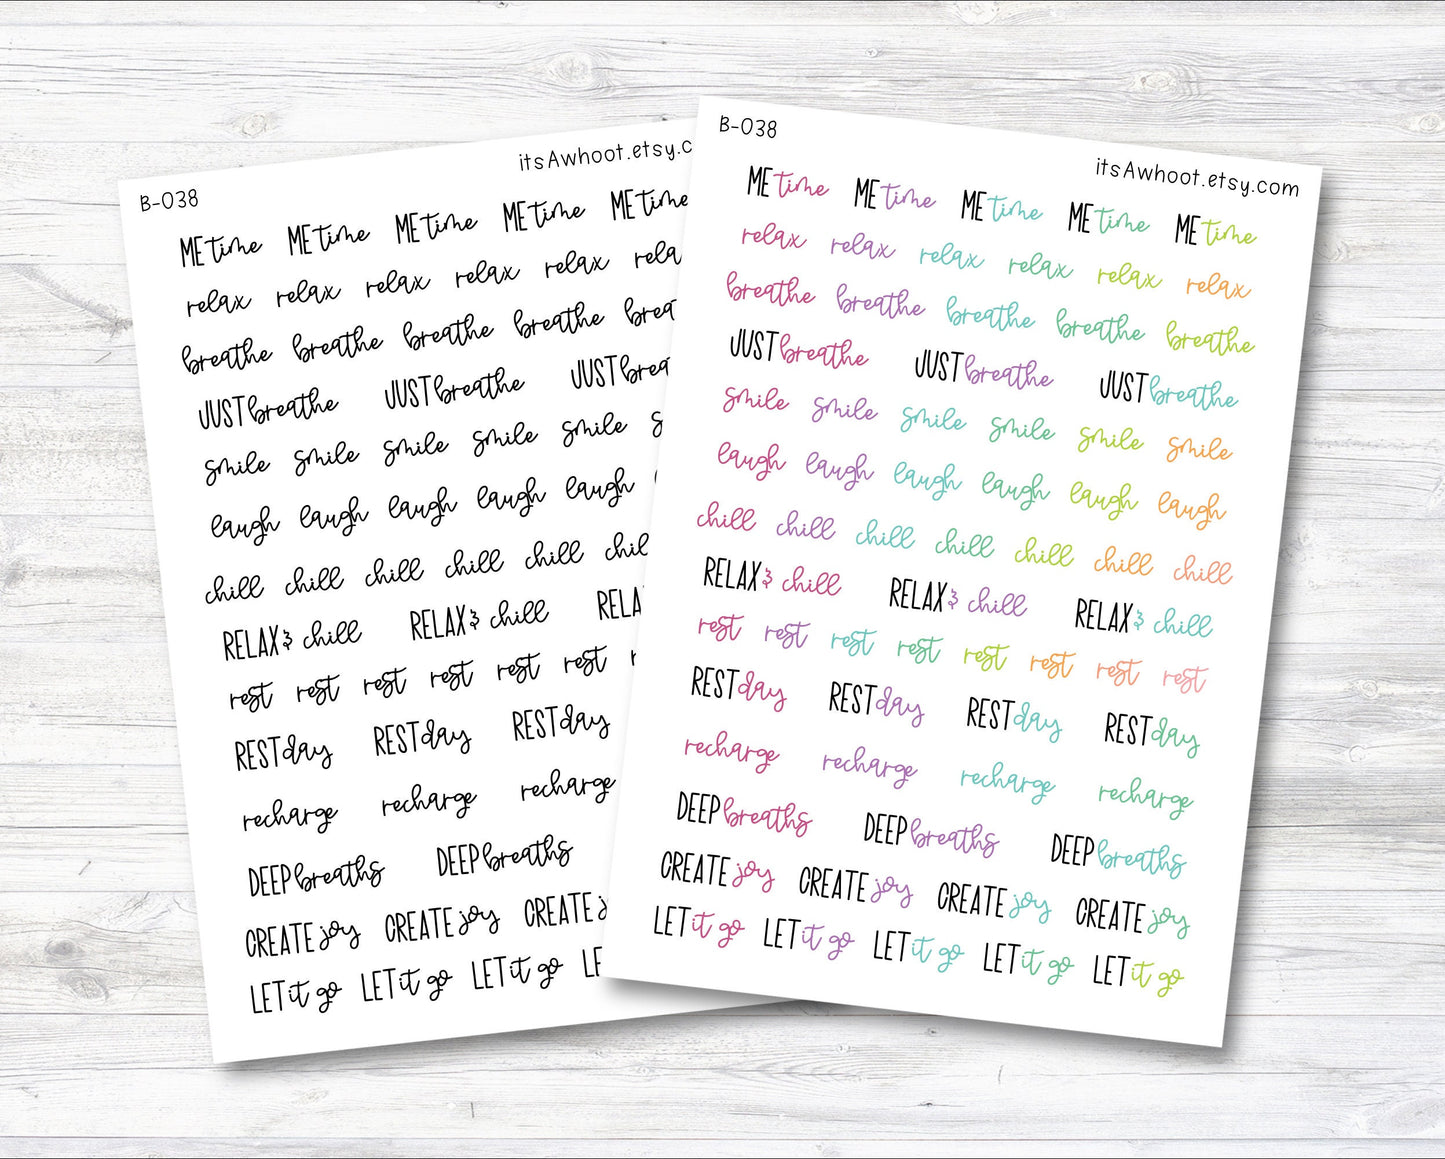 B-038
itsAwhoot.etsy.c
ME time ME time ME time ME time ME time
relax relax relax relax relax rela
breathe breathe breathe breathe brea
JUST breathe JUST breathe JUST brea
smile smile smile smile smile s
laugh laugh laugh laugh laugh
chill chill chill chill chill chil
RELAX & chill RELAX & chill RELA
rest rest rest rest rest rest r
REST day REST day REST day
recharge recharge recharge
DEEP breaths DEEP breaths
CREATE joy CREATE joy CREATE j
LET it go LET it go LET it go LE
B-038
itsAwhoot.etsy.com
ME time ME time ME time ME time ME time
relax relax relax relax relax relax
breathe breathe breathe breathe breathe
JUST breathe JUST breathe JUST breathe
smile smile smile smile smile smile
laugh laugh laugh laugh laugh laugh
chill chill chill chill chill chill chill
RELAX & chill RELAX & chill RELAX & chill
rest rest rest rest rest rest rest rest
REST day REST day REST day REST day
recharge recharge recharge recharge
DEEP breaths DEEP breaths DEEP breaths
CREATE joy CREATE joy CREATE joy CREATE joy
LET it go LET it go LET it go LET it go LET it go